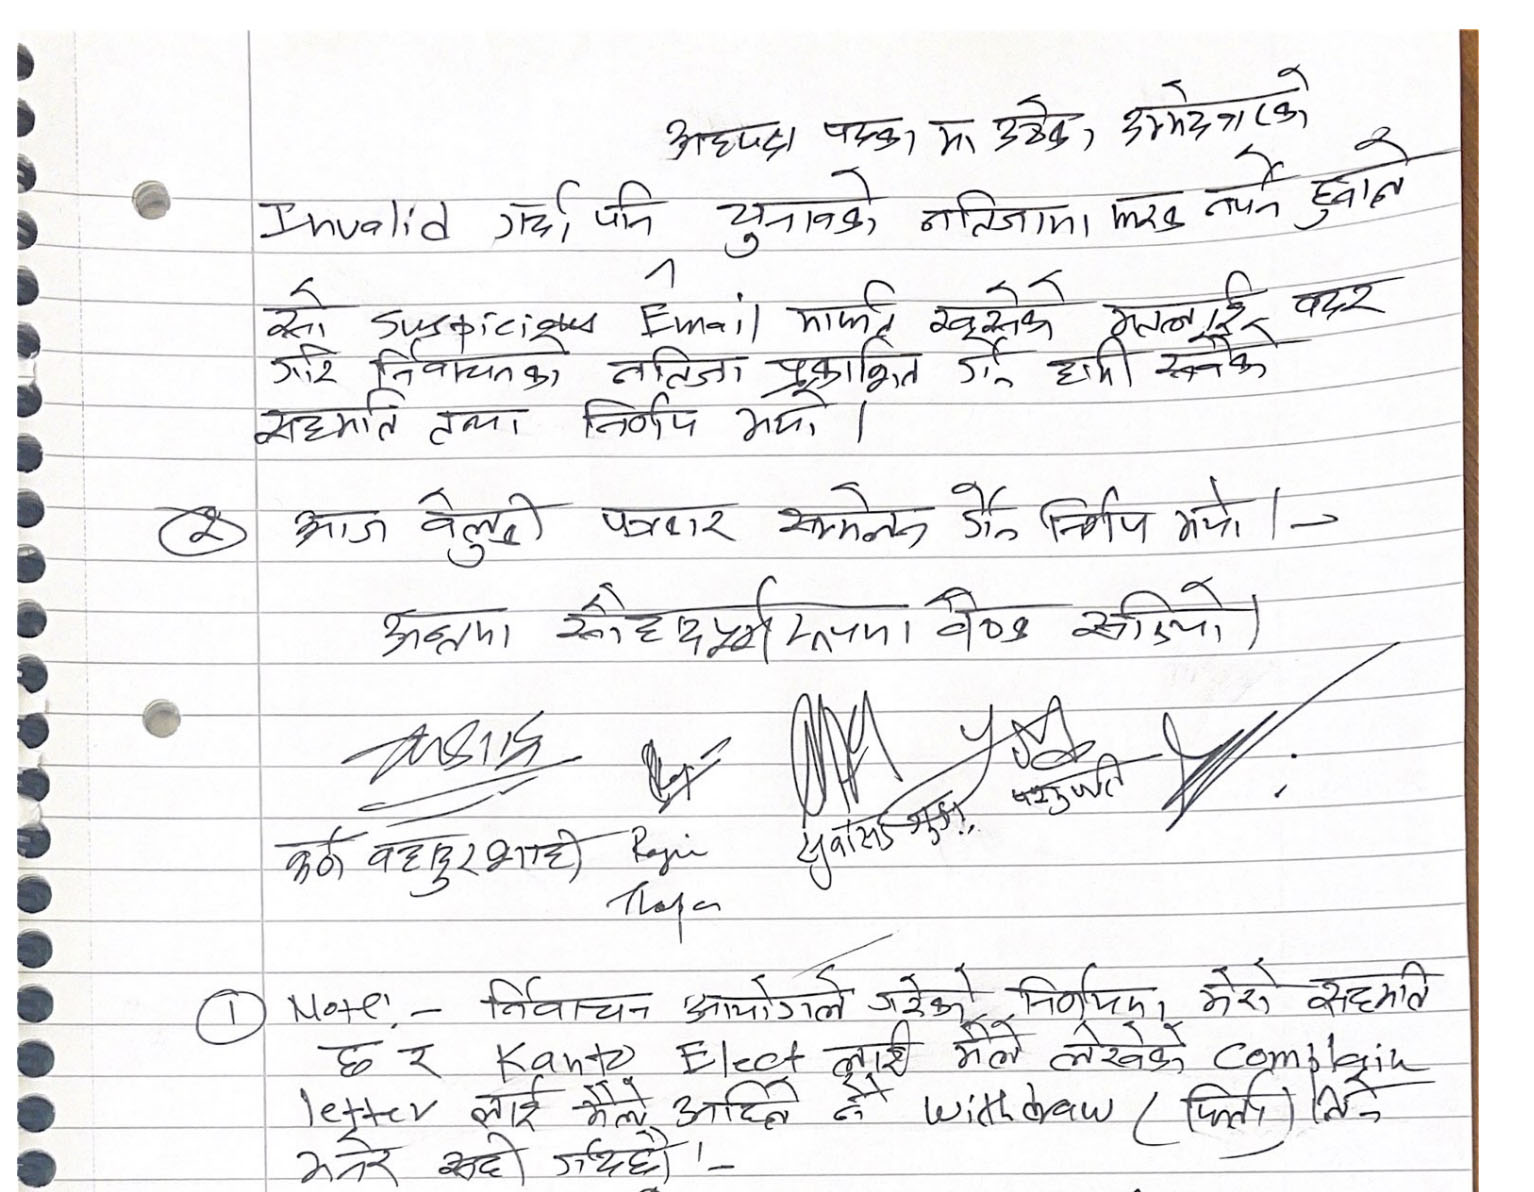 अध्यक्ष पदका मा उठेका उम्मेदवारको
Invalid गर्दा पनि चुनावको नतिजामा फरक नपर्ने हुनाले
सो Suspicious Email मार्फत खसेको मतलाई बदर
गरि निर्वाचनको नतिजा प्रकाशित गर्न हामी सबैको
सहमति तथा निर्णय भयो ।
② आज बेलुकी पत्रकार सम्मेलन गर्ने निर्णय भयो । -
अन्तमा सौहार्दपूर्ण रुपमा बैठक सकियो ।
कर्ण बहादुर शाही Raju
Thapa
पशुपति
① Note:- निर्वाचन आयोगले गरेको निर्णयमा मेरो सहमति
छ र Kanto Elect लाई मैले लेखेको Complain
letter लाई मैले अहिले नै withdraw (फिर्ता) लिने
भनेर सही गर्दछौ ।-